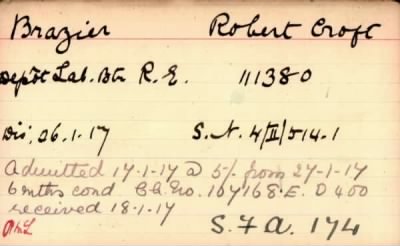 Brazier Robert Croft
Depôt Lab. Btn R.E. 111380
Dis. 26.1.17 S.N. 4/II/514-1
Admitted 17-1-17 @ 5/- from 27-1-17
6 mths cond Ch. No. 107168.E. D 400
received 18-1-17
S.F.A. 174